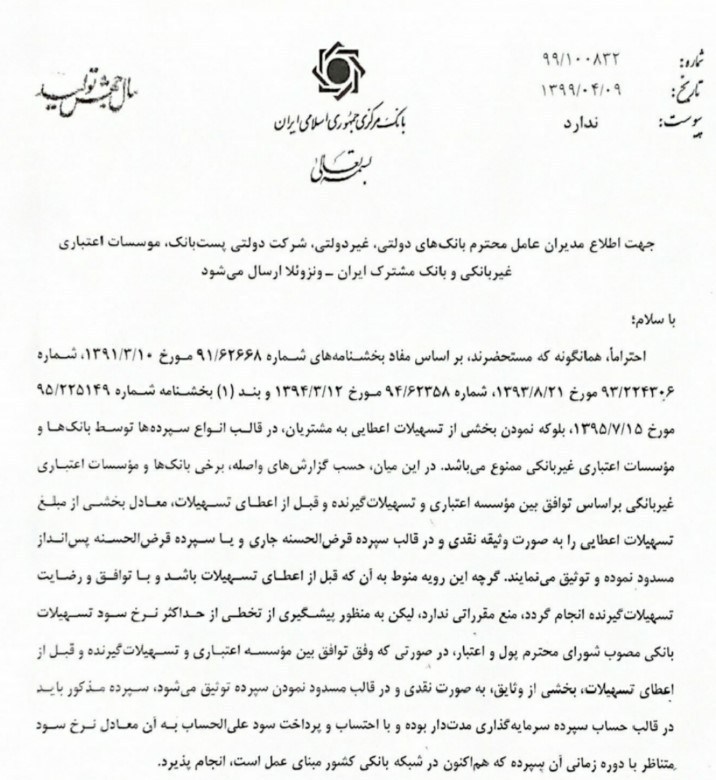 شماره: ۹۹/۱۰۰۸۳۲
تاریخ: ۱۳۹۹/۰۴/۰۹
پیوست: ندارد
سال جهش تولید
بانک مرکزی جمهوری اسلامی ایران
بسمه تعالی
جهت اطلاع مدیران عامل محترم بانک‌های دولتی، غیردولتی، شرکت دولتی پست‌بانک، موسسات اعتباری
غیربانکی و بانک مشترک ایران – ونزوئلا ارسال می‌شود
با سلام؛
احتراماً، همانگونه که مستحضرند، بر اساس مفاد بخشنامه‌های شماره ۹۱/۶۲۶۶۸ مورخ ۱۳۹۱/۳/۱۰، شماره
۹۳/۲۲۴۳۰۶ مورخ ۱۳۹۳/۸/۲۱، شماره ۹۴/۶۲۳۵۸ مورخ ۱۳۹۴/۳/۱۲ و بند (۱) بخشنامه شماره ۹۵/۲۲۵۱۴۹
مورخ ۱۳۹۵/۷/۱۵، بلوکه نمودن بخشی از تسهیلات اعطایی به مشتریان، در قالب انواع سپرده‌ها توسط بانک‌ها و
مؤسسات اعتباری غیربانکی ممنوع می‌باشد. در این میان، حسب گزارش‌های واصله، برخی بانک‌ها و مؤسسات اعتباری
غیربانکی براساس توافق بین مؤسسه اعتباری و تسهیلات‌گیرنده و قبل از اعطای تسهیلات، معادل بخشی از مبلغ
تسهیلات اعطایی را به صورت وثیقه نقدی و در قالب سپرده قرض‌الحسنه جاری و یا سپرده قرض‌الحسنه پس‌انداز
مسدود نموده و توثیق می‌نمایند. گرچه این رویه منوط به آن که قبل از اعطای تسهیلات باشد و با توافق و رضایت
تسهیلات‌گیرنده انجام گردد، منع مقرراتی ندارد، لیکن به منظور پیشگیری از تخطی از حداکثر نرخ سود تسهیلات
بانکی مصوب شورای محترم پول و اعتبار، در صورتی که وفق توافق بین مؤسسه اعتباری و تسهیلات‌گیرنده و قبل از
اعطای تسهیلات، بخشی از وثایق، به صورت نقدی و در قالب مسدود نمودن سپرده توثیق می‌شود، سپرده مذکور باید
در قالب حساب سپرده سرمایه‌گذاری مدت‌دار بوده و با احتساب و پرداخت سود علی‌الحساب به آن معادل نرخ سود
متناظر با دوره زمانی آن سپرده که هم‌اکنون در شبکه بانکی کشور مبنای عمل است، انجام پذیرد.